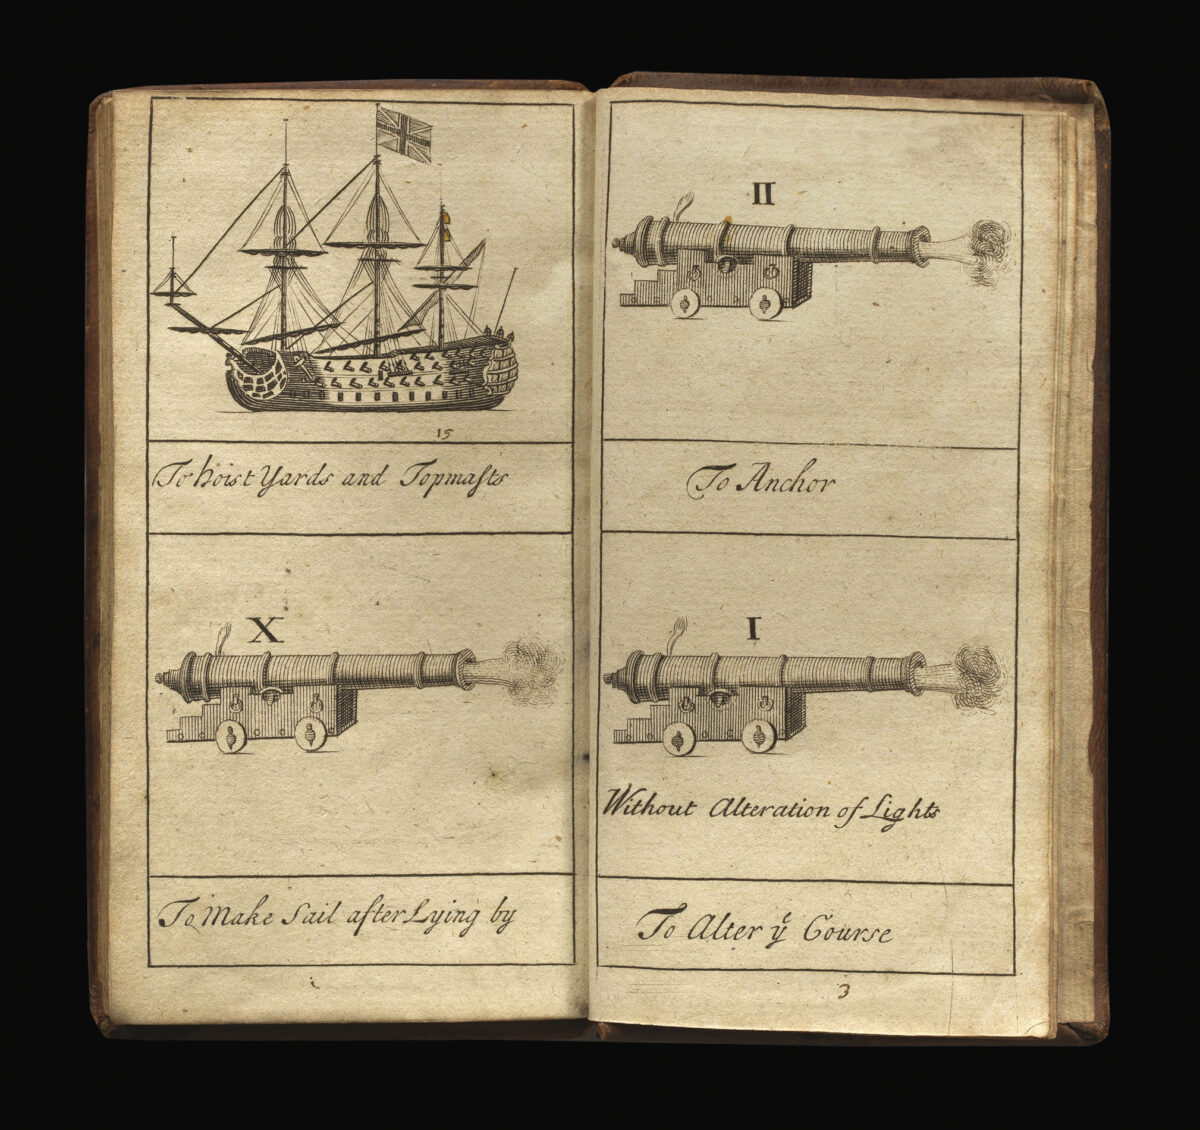 15
To hoist Yards and Topmasts
X
To Make Sail after Lying by
II
To Anchor
I
Without Alteration of Lights
To Alter yͤ Course
3